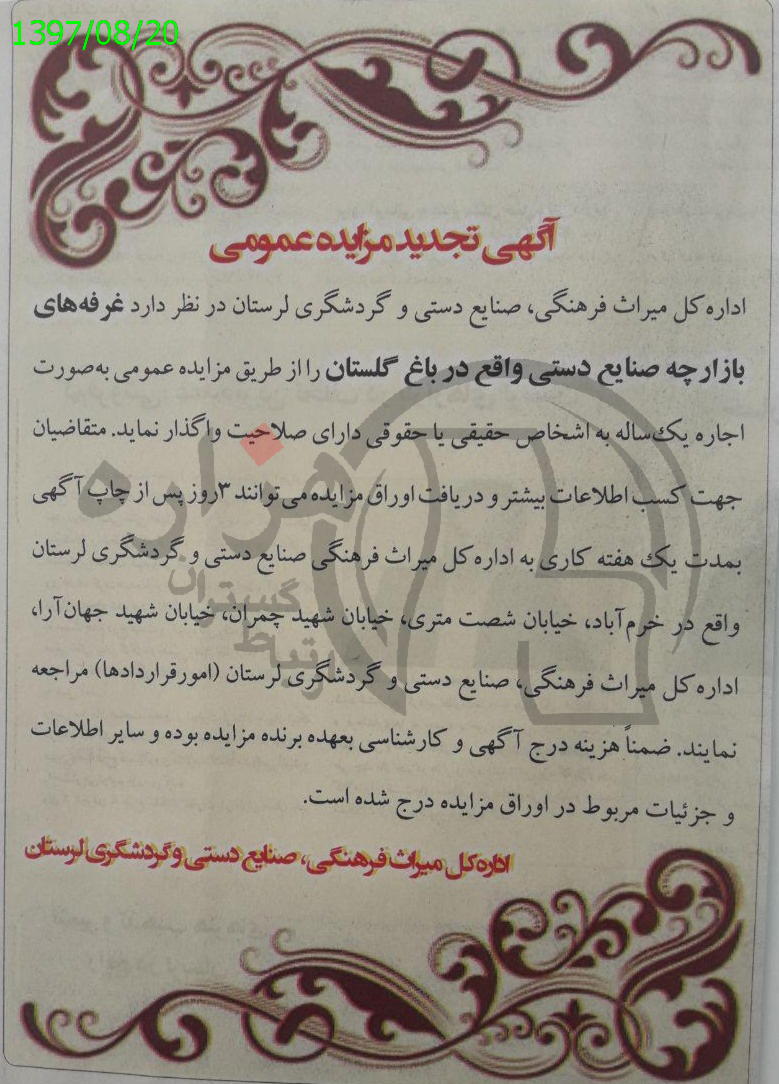 1397/08/20
آگهی تجدید مزایده عمومی
اداره کل میراث فرهنگی، صنایع دستی و گردشگری لرستان در نظر دارد غرفه‌های
بازارچه صنایع دستی واقع در باغ گلستان را از طریق مزایده عمومی به‌صورت
اجاره یک‌ساله به اشخاص حقیقی یا حقوقی دارای صلاحیت واگذار نماید. متقاضیان
جهت کسب اطلاعات بیشتر و دریافت اوراق مزایده می‌توانند ۳روز پس از چاپ آگهی
بمدت یک هفته کاری به اداره کل میراث فرهنگی صنایع دستی و گردشگری لرستان
واقع در خرم‌آباد، خیابان شصت متری، خیابان شهید چمران، خیابان شهید جهان‌آرا،
اداره کل میراث فرهنگی، صنایع دستی و گردشگری لرستان (امورقراردادها) مراجعه
نمایند. ضمناً هزینه درج آگهی و کارشناسی بعهده برنده مزایده بوده و سایر اطلاعات
و جزئیات مربوط در اوراق مزایده درج شده است.
اداره کل میراث فرهنگی، صنایع دستی و گردشگری لرستان
هزاره
گستران
ارتباط